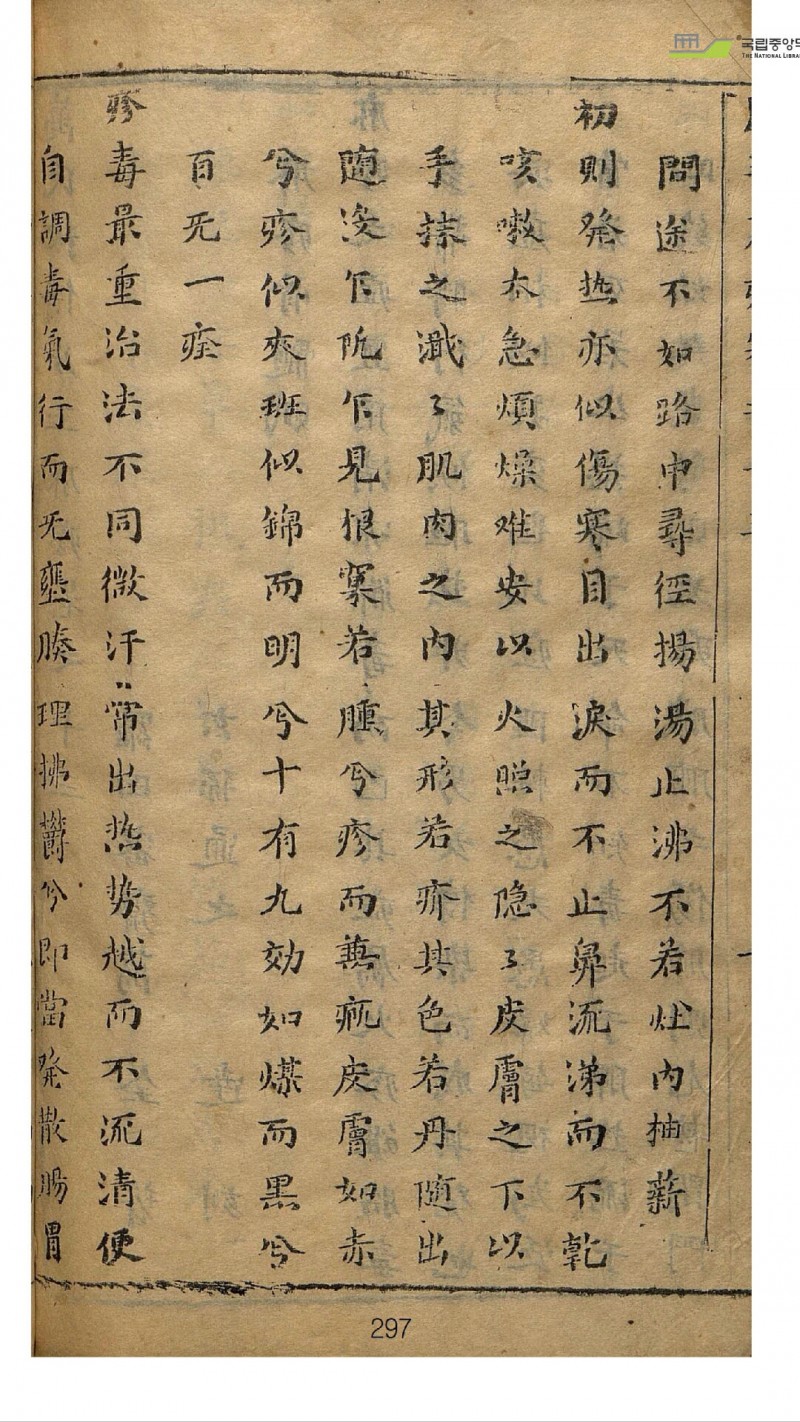 국립중앙도
THE NATIONAL LIBRA
問途不如路中尋徑揚湯止沸不若灶内抽薪
初則発热亦似傷寒目出淚而不止鼻流涕而不乾
咳嗽太急煩燥难安以火照之隐了皮膚之下以
手抹之溅了肌肉之内其形若疥其色若丹随出
随沒乍隐乍見根窠若腫兮疹而兼瘾皮膚如赤
兮疹似夾班似錦而明兮十有九効如煤而黒兮
百无一痊
疹毒最重治法不同微汗常出热势越而不流清便
自調毒氣行而无壅腠理拂欝兮即當発散腸胃
297